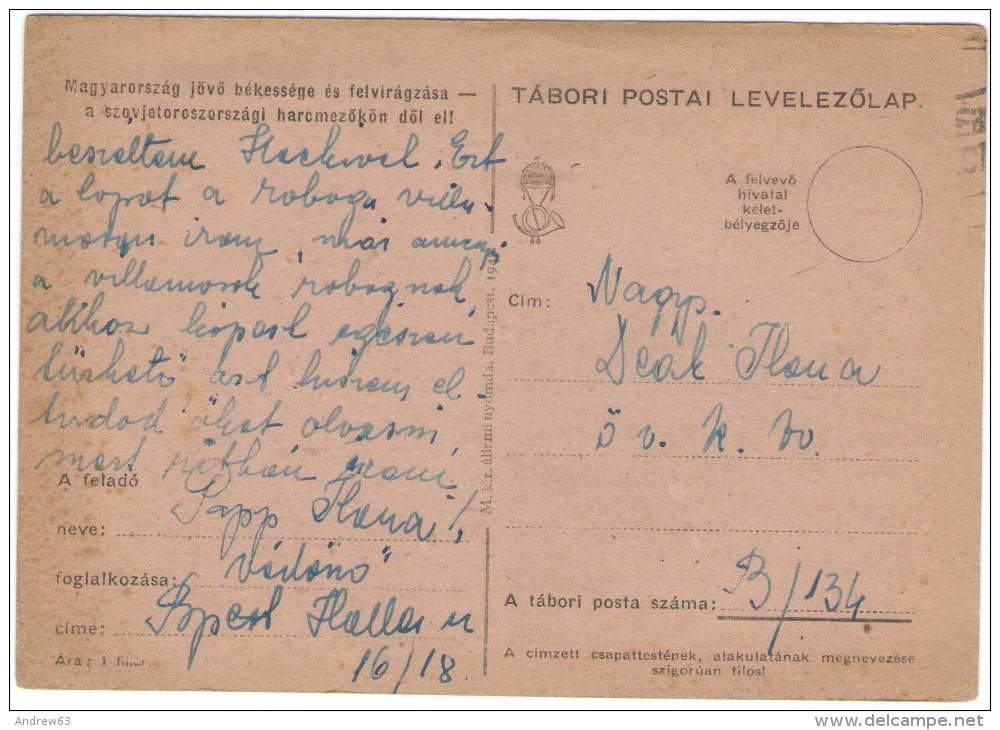 Magyarország jövő békessége és felvirágzása —
a szovjetoroszországi harcmezőkön dől el!
beszéltem Ezt
a lapot a robogó villa-
moson irom, már amenyi
a villamosok robognak,
ahhoz képest egészen
tűrhető azt hiszem el
tudod őket olvasni,
mert
A feladó
neve: Papp Ilona
foglalkozása: Védőnő
címe: Bpest Haller u
16/18
Ára: 1 fillér.
M. kir. állami nyomda, Budapest, 194
TÁBORI POSTAI LEVELEZŐLAP.
A felvevő
hivatal
kelet-
bélyegzője
Cím: Nagys.
Deák Ilona
ö v. k.
A tábori posta száma: B/134
A címzett csapattestének, alakulatának megnevezése
szigorúan tilos!
Andrew63
www.delcampe.net